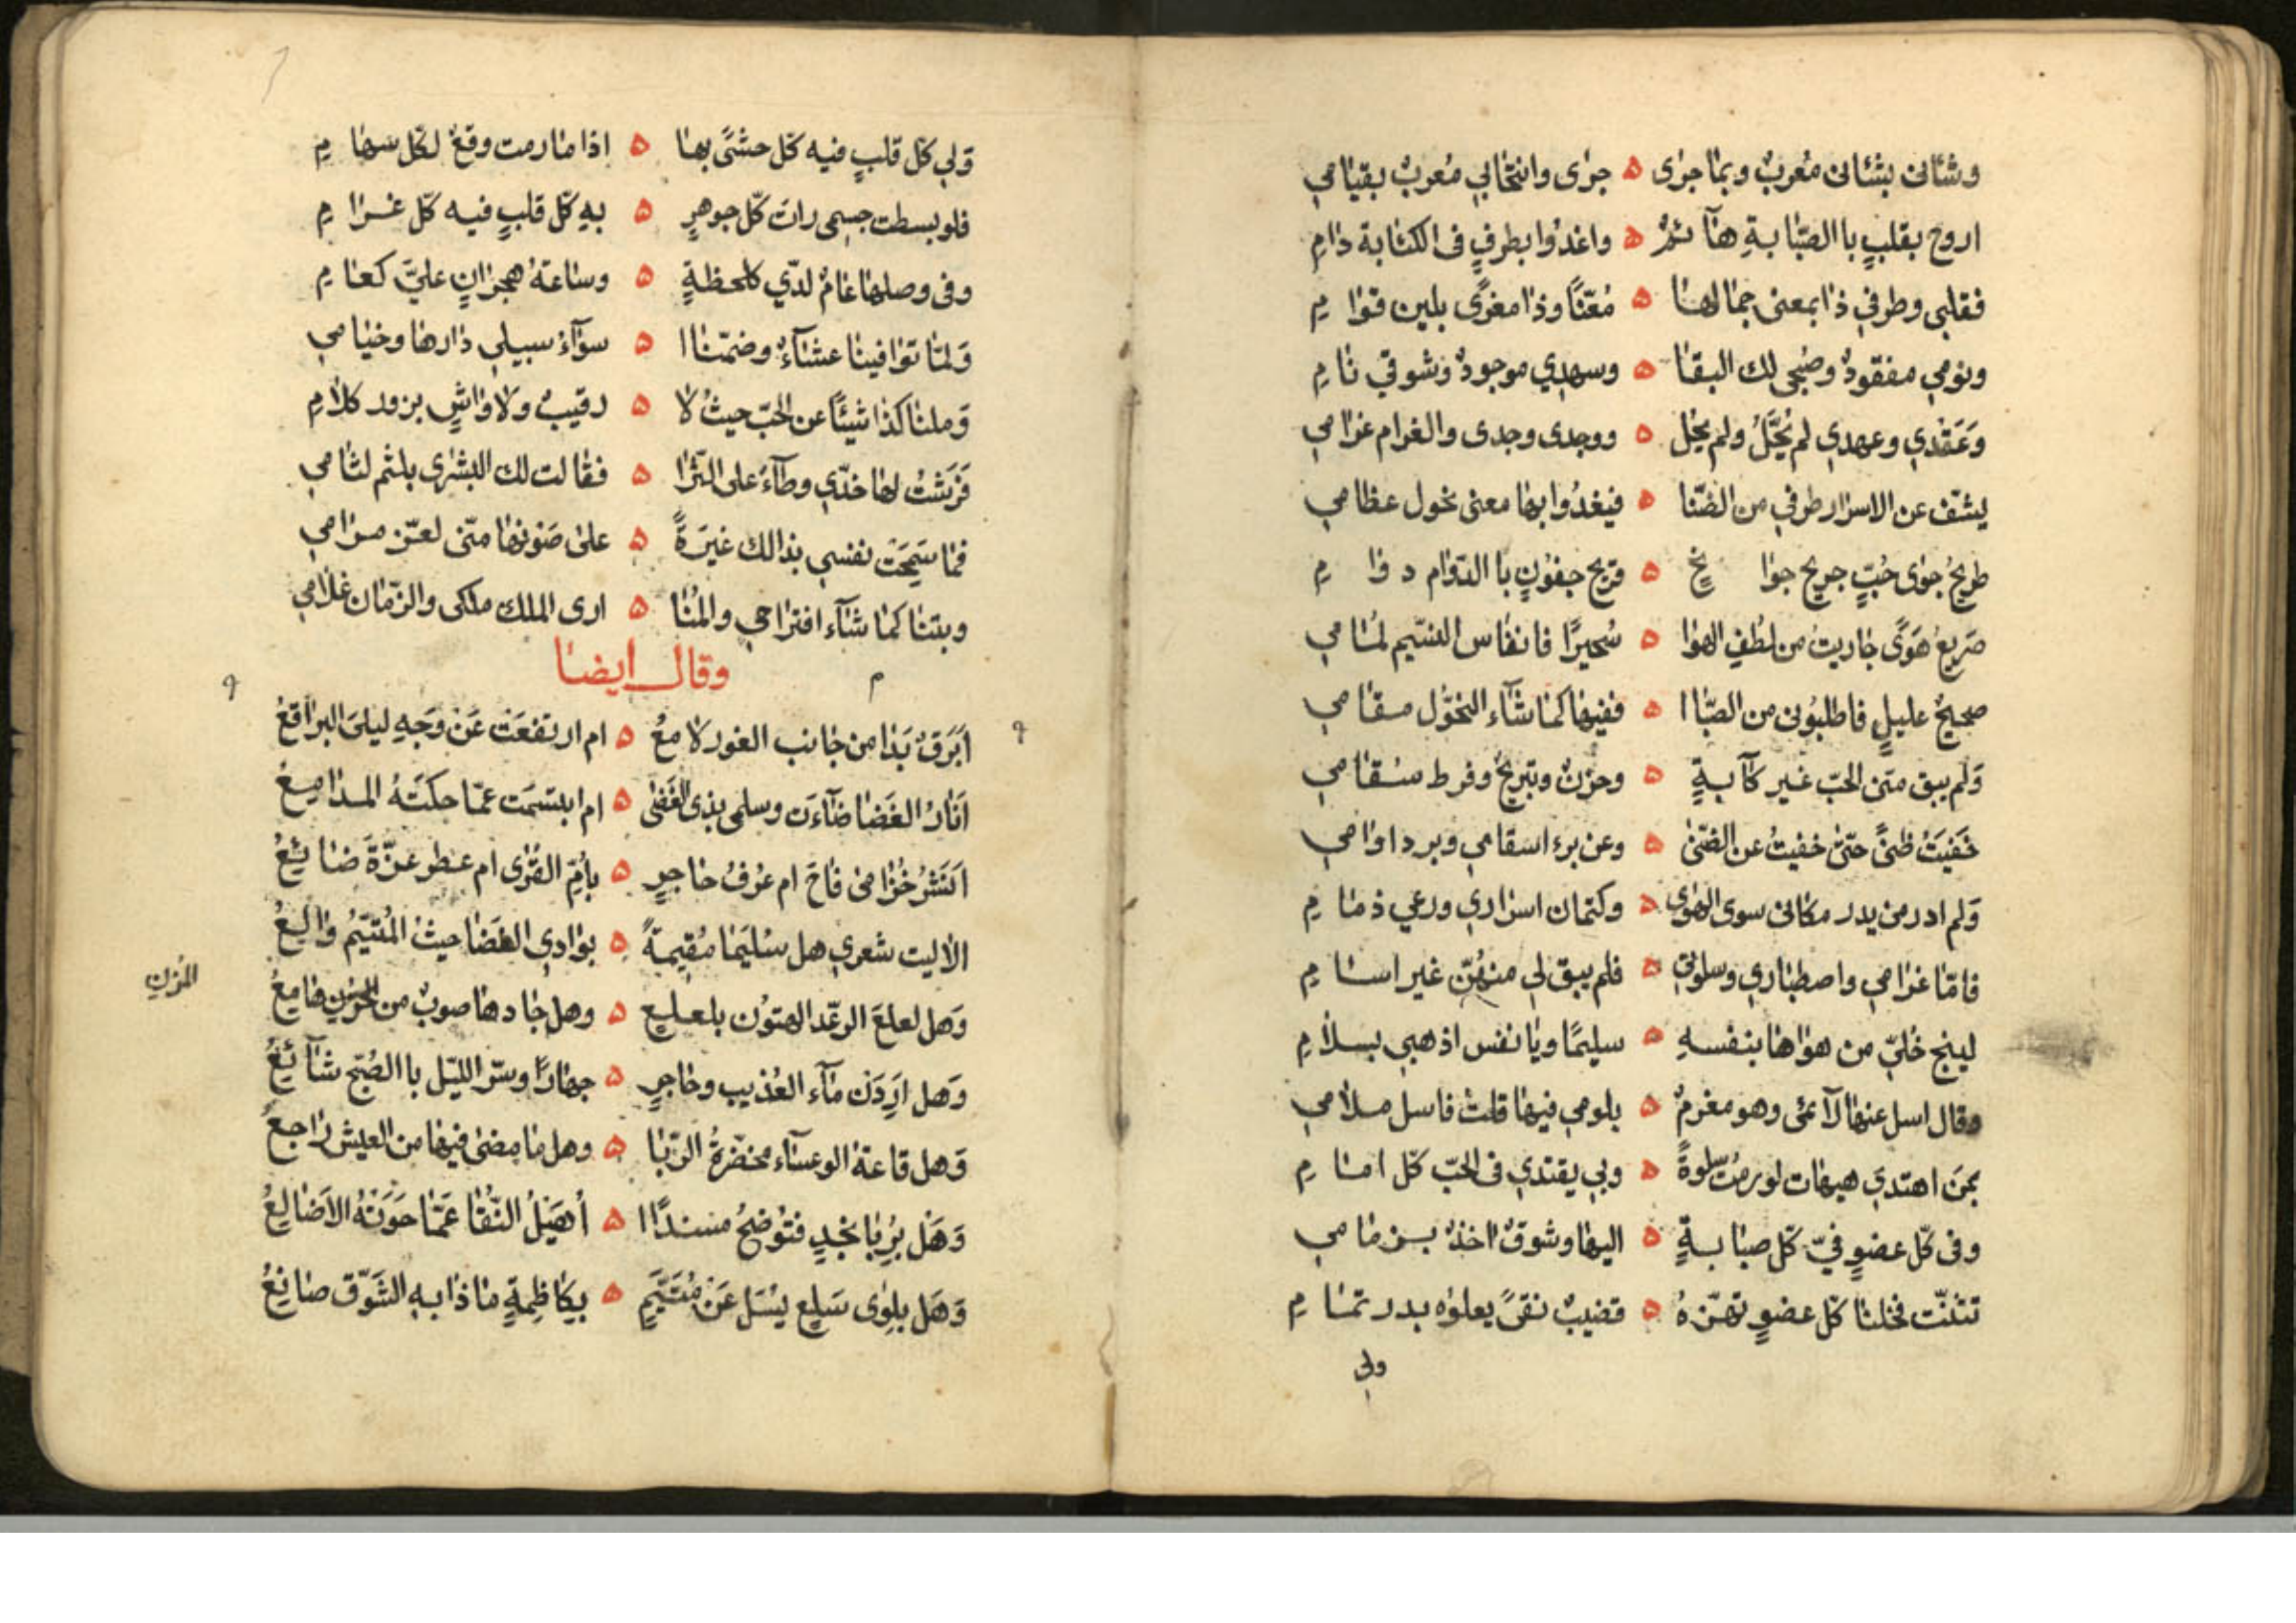 وشانى بشانى مُعربٌ وبما جرى ه جرى وانتحابي مُعربٌ بقيامي
اروح بقلبٍ باالصّبابةِ هآئمٌ ه واغدُوا بطرفٍ فى الكئابة دامِ
فقلبى وطرفي ذا بمعنى جمالها ه مُعّنًا وذا مغرًى بلين قوامِ
ونومي مفقودٌ وصُبحى لك البقا ه وسهدي موجودٌ وشوقي نامِ
وَعَقْدي وعهدي لم يُحَّلُ ولم يحُل ه ووجدى وجدى والغرام غرامي
يشّف عن الاسرار طرفي من الضّنا ه فيغدُوا بها معنى نحول عظامي
طريحُ جوى حُبٍّ جريح جوانحٍ ه قريح جفونٍ باالدّوام دوامِ
صَريعُ هَوًى جاريتُ من لطُفِ الهوا ه سُحيرًا فانفاس النسّيم لمُامي
صحيحٌ عليلٍ فاطلبُونى من الصّباا ه ففيها كما شآء النحّول مقامي
وَلم يبق منّى الحبّ غير كآبةٍ ه وحزنٌ وتبريحٌ وفرط سقامي
خَفيَتُ ظنىً حتّى خفيتُ عن الضّنى ه وعن برء اسقامي وبرد اوامي
وَلم ادر من يدر مكانى سوى الهوى ه وكتمان اسراري ورعي ذمامِ
فامّا غرامي واصطباري وسلوتي ه فلم يبق لي منهُنّ غير اسامِ
لينج خُليّ من هواها بنفسهِ ه سليمًا ويا نفس اذهبي بسلامِ
وقال اسل عنها لآئمى وهو مغرمٌ ه بلومي فيها قلت فاسل ملامي
بمَن اهتدي هيهات لو رمْت سلوةً ه وبي يقتدي فى الحبّ كلّ امامِ
وفى كلّ عضوٍ فيّ كلّ صبابةٍ ه اليها وشوقٌ اخذٌ بزمامي
تثنّت فخلنا كلّ عضوٍ تهّزهُ ه قضيبٌ نقىً يعلوه بدر تمامِ
ولي
وَلي كلّ قلبٍ فيه كلّ حشىً بها ه اذا مارمت وقعٌ لكلّ سهامِ
فلو بسطت جسمى رات كلّ جوهرٍ ه بهِ كلّ قلبٍ فيه كلّ غرامِ
وفى وصلها عامٌ لديّ كلحظةٍ ه وساعةُ هجرانٍ عليَّ كعامِ
وَلمّا توافينا عشآءً وضمّناا ه سوآءُ سبيلي دارها وخيامي
وَملنا كذا شيئًا عن الحبّ حيثُ لا ه رقيبٌ ولا واشٍ بزور كلامِ
فَرَشْتُ لها خدّي وطآءً على الثّرا ه فقالت لك البشرى بلثم لثامي
فما سَمِحَتْ نفسي بذالك غيَرَةً ه على صَونها منّى لعزّ مرامي
وبتنا كما شآء اقتراحي والمُنا ه ارى الملك ملكى والزّمان غلامي
وقال ايضا
م
اَبَرَقٌ بَدا من جانب الغور لامعُ ه ام ارتفعَتْ عَن وَجَهِ ليلىَ البراقعُ
اَنارُ الغَضا ضآءَت وسلمى بذى الغَضى ه ام ابتسمَت عمّا حكتَهُ المدامِعُ
اَنَشرُ خُزامى فاحَ ام عَرفُ حاجرٍ ه بأُمِّ القُرٰى ام عطر عزّةَ ضائِعُ
الاليت شعري هل سُليَما مُقيمةً ه بوادي الغضا حيث المُتيّمُ والِعُ
وَهل لعلعَ الرعّد الهتوُن بلعلعٍ ه وهل جادها صوبٌ من المزن هامِعُ
المُزنِ
وَهل ارَِدَن مآء العُذيبِ وحاجرٍ ه جهارًا وسّر الليّل باالصُبّح شآئِعُ
وَهل قاعة الوعسآء مخضّرةُ الرّبا ه وهل ما مضى فيها من العيش راجعُ
وَهَل برُبا نجَدٍ فتُوضِحُ مسندًاا ه أُهَيلُ النّقا عَمّا حَوَتهُ الاَضالِعُ
وَهَل بلِوى سَلِعٍ يُسَل عَن مُتَيَّمٍ ه بِكاظِمةٍ ماذا بهِ الشَوّق صانِعُ